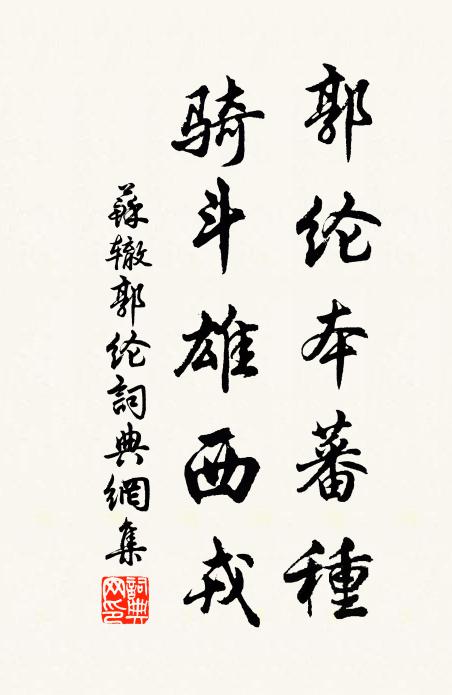 郭纶本蕃種
骑斗雄西戎
蘇辙郭纶詞典網集
詞典网印